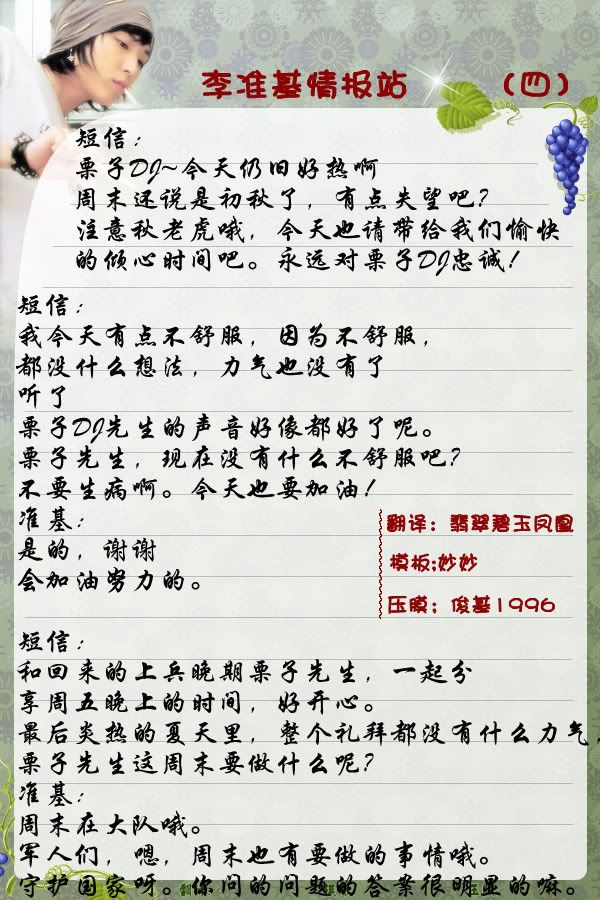 李准基情报站 （四）
短信：
栗子DJ~今天仍旧好热啊
周末还说是初秋了，有点失望吧？
注意秋老虎哦，今天也请带给我们愉快
的倾心时间吧。永远对栗子DJ忠诚！
短信：
我今天有点不舒服，因为不舒服，
都没什么想法，力气也没有了
听了
栗子DJ先生的声音好像都好了呢。
栗子先生，现在没有什么不舒服吧？
不要生病啊。今天也要加油！
准基：
是的，谢谢
会加油努力的。
翻译：翡翠碧玉凤凰
模板;妙妙
压膜；俊基1996
短信：
和回来的上兵晚期栗子先生，一起分
享周五晚上的时间，好开心。
最后炎热的夏天里，整个礼拜都没有什么力气，
栗子先生这周末要做什么呢？
准基：
周末在大队哦。
军人们，嗯，周末也有要做的事情哦。
守护国家呀。你问的问题的答案很明显的嘛。